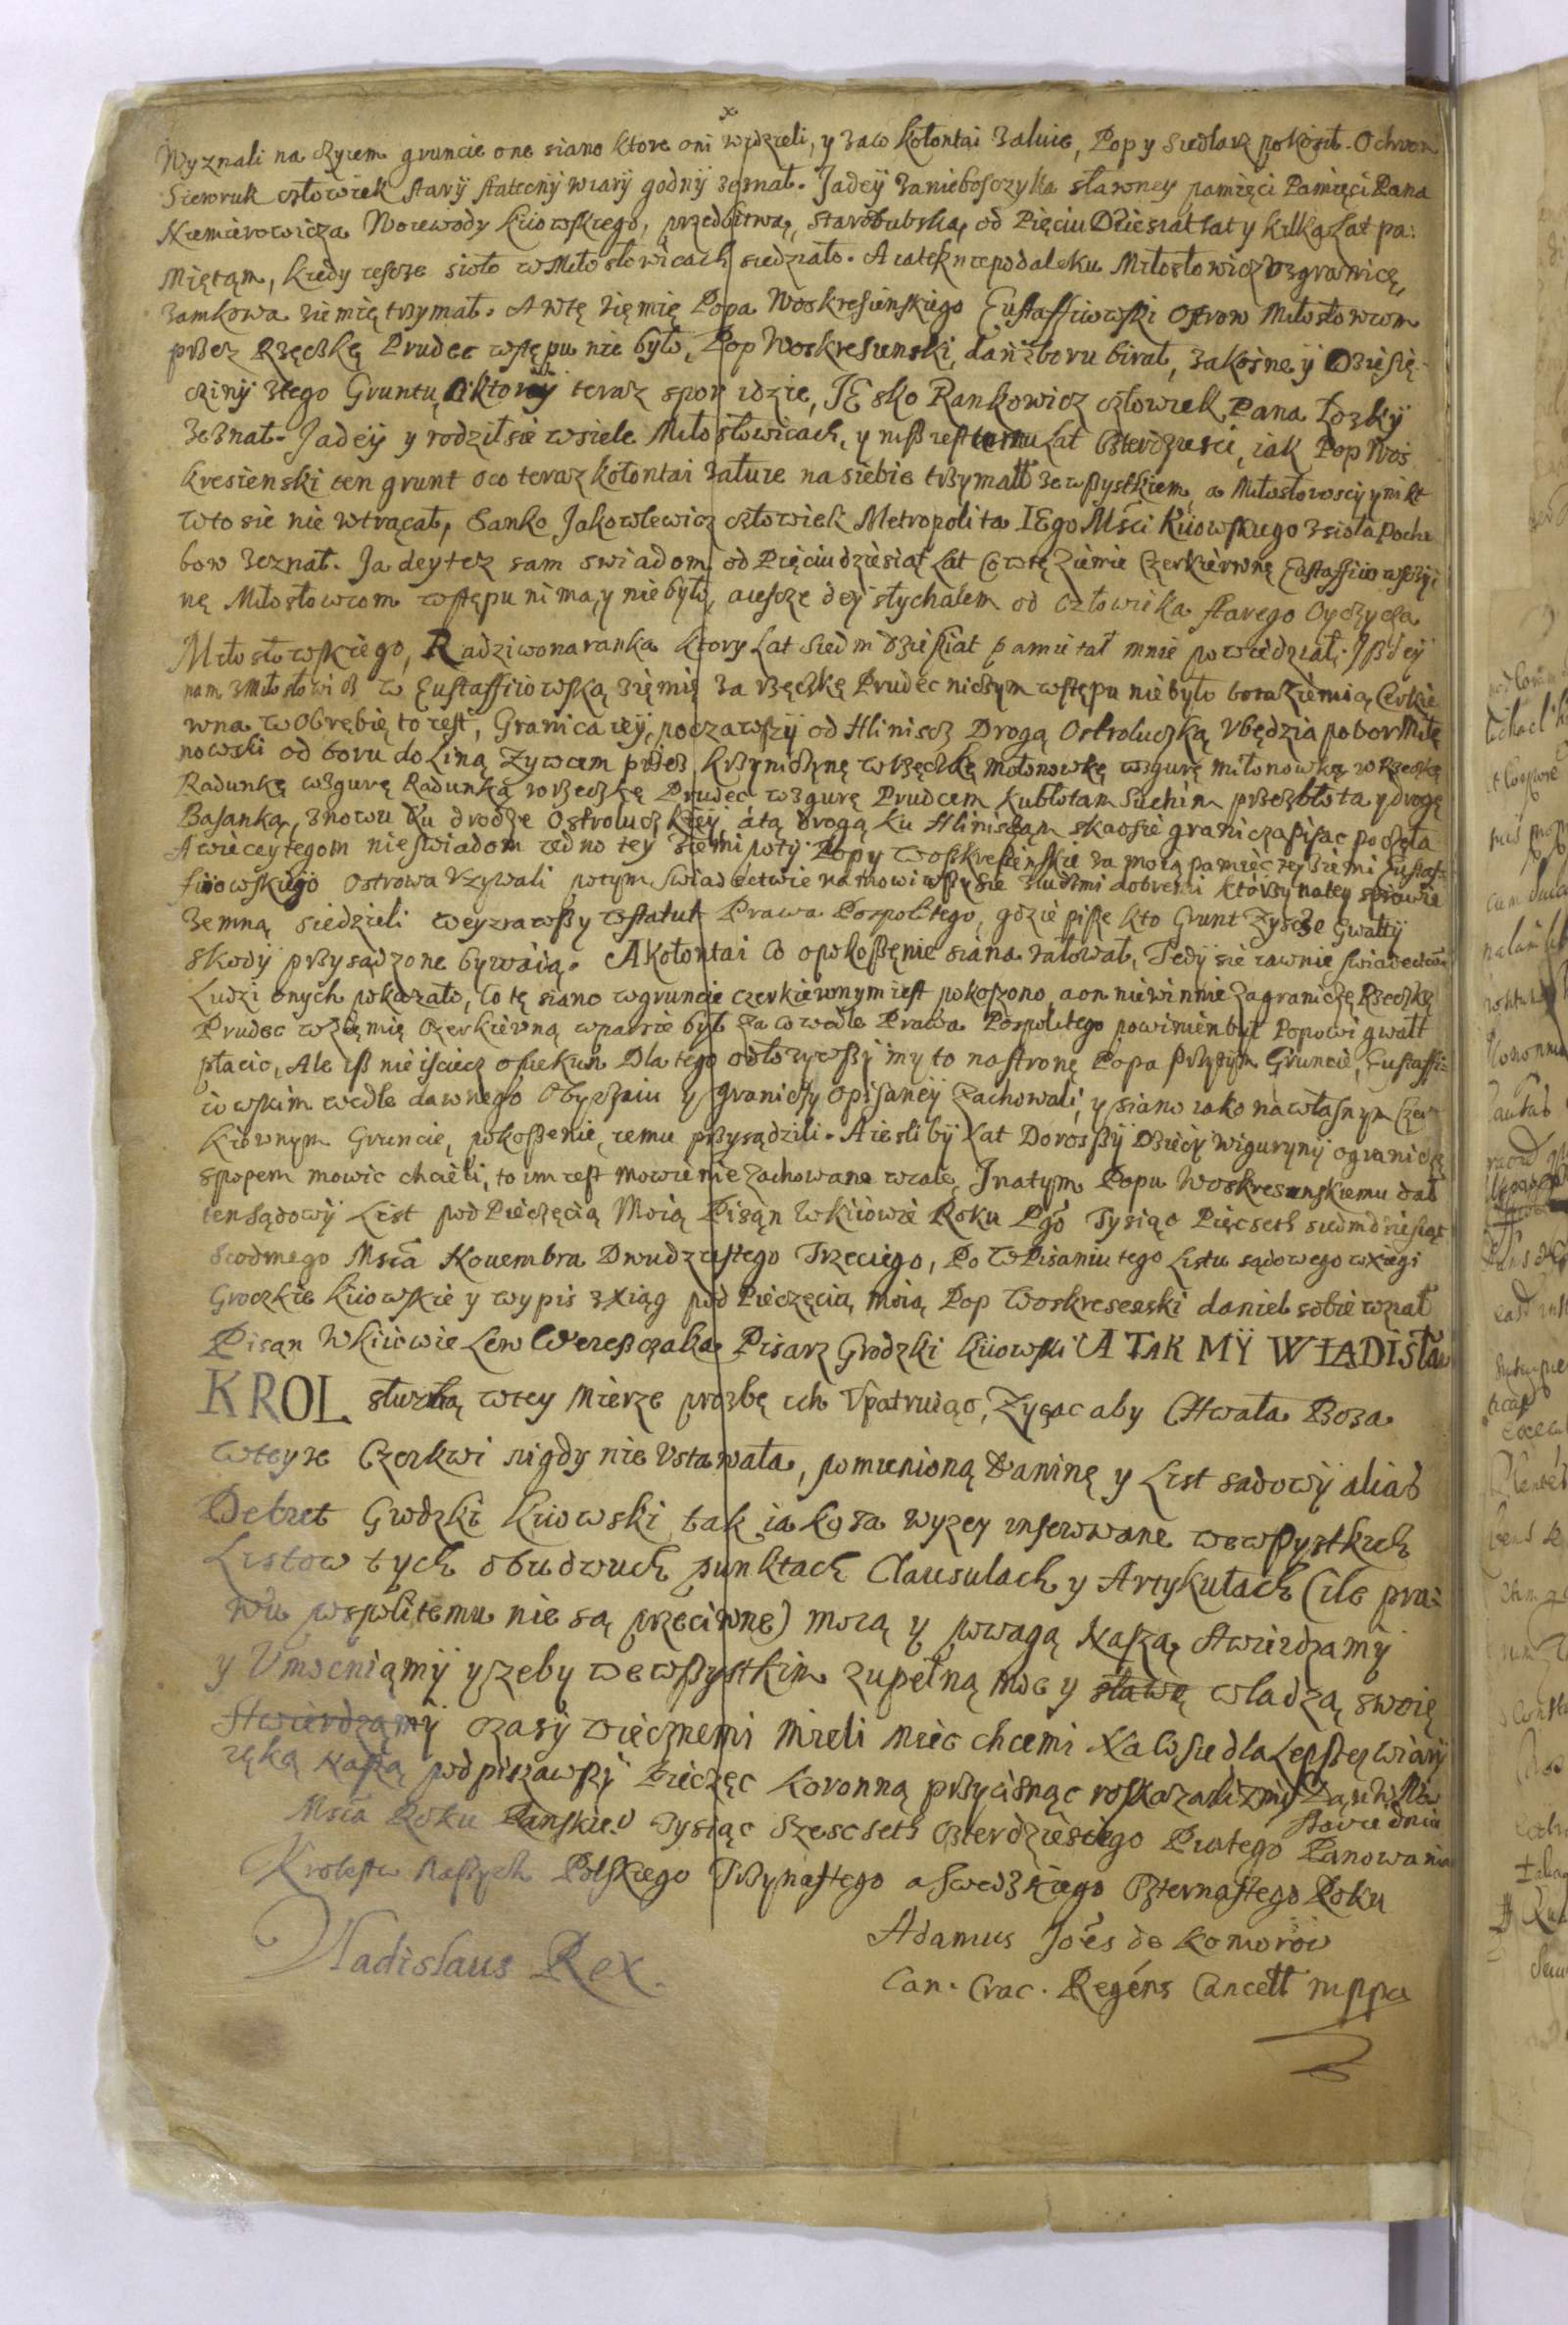 Wyznali na czyiem gruncie one siano ktore oni widzieli, y zaco Kołontai żaluie, Pop y Siedlarz pokosił. Ochron
Siewruk człowiek starÿ statecznÿ wiarÿ godnÿ zeznał. Ja deÿ za nieboszczyka sławney pamięci Pamięci Pana
Niemierowicza Woiewody Kiiowskiego, przedbitwą, Starodubską, od Pięciu Dziesiat lat y kilką Lat pa:
miętąm, kiedy iescze sioło w Miłosłowicach siedziało. A iatek niepodaleku Miłosłowicz zgranicę
zamkowa ziemię trzymał. A wtę zięmię Popa Woskresienskiego Eustaffiiowski Ostrow Miłosłowcom
przez Rzęczkę Prudec wstępu nie było, Pop Woskresienski, dań zboru birał, zakosne ÿ Dzięsię
cinÿ ztego Gruntu, oktorÿ teraz spor idzie, JEsko Rankowicz człowiek Pana Łozkÿ
zeznał. Ja deÿ y rodził sie wsiele Miłosłowicach, y niß iest temu Lat czterdziesci, iak Pop Wos
kresienski ten grunt oco teraz Kołontai żałuie na siebie trzymał zewßystkiem, a Miłosłowscy y nikt
wto sie nie wtrącał, Sanko Jakowlewicz człowiek Metropolita IEgo Mści Kiiowskiego zsioła Poche
bow zeznał. Ja dey tez sam swiadom od Pięciudziesiąt Lat Co wtę Ziemie Czerkiewnę Eustaffiiowszczy
nę Miłosłowcom wstępu nima, y niebyło, aiescze deÿ słychalem od człowieka starego Oyczycza
Miłosłowskiego, Radziwonaranka ktory Lat siedmdziesiat pamietał mnie powiedział. Jß deÿ
nam z Miłosłowicz w Eustaffiiowską zięmię za rzęczkę Prudec niczym wstępu niebyło bota Ziemia Cerkie
wna w Obrębię to iest, Granica ieÿ, począwszÿ od Hliniscz Drogą Ostroluczką Vbędzia pobor Miłę
nowski od boru doliną Zywcem przez Krzynicznę wrzęczkę Mołonowkę wzgurę miłonowką worzeczkę
Radunkę wzgurę Radunką worzeczkę Prudec wzgurę Prudcem kubłotam Suchim przezbłota y drogę
Basanką, znowu Ku drodze Ostroluczkieÿ, a tą drogą ku Hliniscam skąd sie granicza pisac poczęła
A wiecey tegom nieswiadom iedno tey ziemi poty Popy Woskresienskie za moią pamięc tey ziemi Eustaf:
fiiowskiego Ostrowa Vzywali potym Swiadectwie namowiwßy sie zludzmi dobremi ktorzy natey sprawie
zemną siedzieli weyzrawßy wstatut Prawa Pospolitego, gdzie pisze kto Grunt Zyscze Gwałtÿ
skodÿ przysądzone bywaią. A Kołontai co opokoßęnie siana żałował, Tedÿ sie iawnie swiadectwem
Ludzi onych pokazało, Co tę siano wgruncie czerkiewnym iest pokoszono, a on niewinnie zagraniczę Rzeczkę
Prudec wzięmię Czerkiewną wparcie był za co wedle Prawa Pospolitego powinien był Popowi gwałt
płacic, Ale iß nie iściecz opiekun Dla tego odłożywßÿ my to na stronę Popa Przy tym Gruncie, Eustaffi:
iowskim wedle dawnego Obyczaiu y granicÿ opisaneÿ Zachowali, y siano iako na własnym Czer
kiewnym Gruncie, pokoßenie, iemu przysądzili. A iesli bÿ Lat Dorosßÿ Dzieci Wigurynÿ ogranicę
spopem mowic chcieli, to im iest mowienie zachowane wcale, Jnatym Popu Woskresenskiemu dał
ten Sądowÿ List pod Pieczęcią Moią Pisąn WKiiowie Roku Pgo Tysiąc Pięcseth siedmdziesiąt
siodmego Msca Nouembra Dwudziestego Trzeciego, Po Wpisaniu tego Listu sądowego wXiegi
Groczkie Kiiowskie y wypis zXiąg pod Pieczęcią moią Pop Woskresenski daniel sobie wział
Pisąn WKiiowie Lew Wereßczaka Pisarz Grodzki Kiiowski A TAK MŸ WŁADISŁAW
KROL słuszną wtey Mierze prozbę ich Vpatruiąc, Zycząc aby Chwała Boza
wteyze Czerkwi nigdy nie Vstawała, pomienioną Daninę y List sądowÿ aliaś
Dekret Grodzki Kiiowski tak iako sa wyzey inserowane wewßystkich
Listow tych obudwuch punktach Clausulach y Artykułach (ile pra:
wu pospolitemu nie są przeciwne) mocą y powagą Naßzą, stwierdzamÿ
y Vmocniąmÿ yzeby wewßystkim zupełną moc y sławę władzą swoię
stwierdzamÿ czasÿ wiecznemi Mieli miec chcemi. Na Co sie dla Lepszeÿ Wiarÿ
ręką Naßzą podpisawszÿ Pieczęc Koronną przycisnąc roskazalizmÿ Dan WWar
szawie dnia
Msca Roku Panskiego Tysiąc Szescseth Czterdziestego Piątego Panowania
Krolestw Naszych Polskiego Trzynastego a Swedzkiego Czternastego Roku
Vladislaus Rex.
Adamus Joēs de Komorow
Can. Crac. Regens Cancell mppa